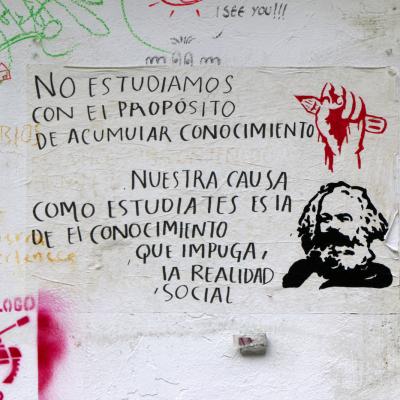 I SEE YOU!!!
NO ESTUDIAMOS
CON El PROPÓSITO
DE ACUMUlAR CONOCIMIENTO
NUESTRA CAUSA
COMO ESTUDIATES ES lA
DE El CONOCIMIENTO
QUE IMPUGA,
lA REALIDAD
SOCIAL
LOGO